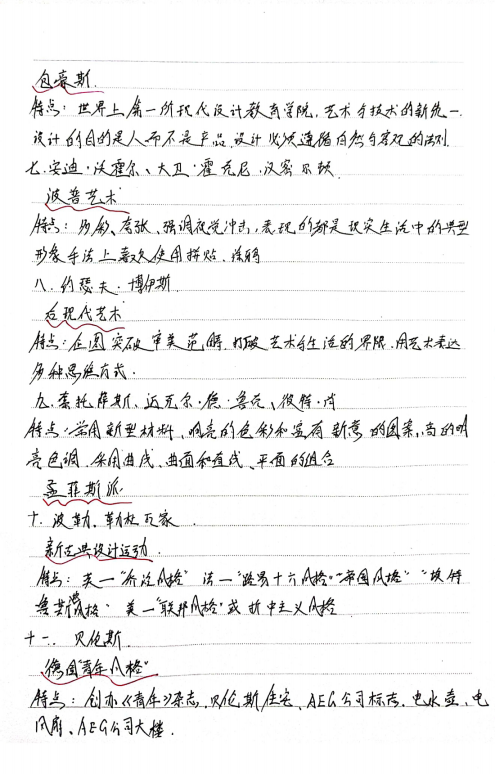 包豪斯.
特点：世界上第一所现代设计教育学院，艺术与技术的新统一.
设计的目的是人而不是产品 设计必须遵循自然与客观的法则
七、安迪·沃霍尔、大卫·霍克尼、汉密尔顿
波普艺术
特点：多彩、夸张、强调视觉冲击，表现的都是现实生活中的典型
形象 手法上喜欢使用拼贴、涂鸦
八、约瑟夫·博伊斯
后现代艺术
特点：企图突破审美范畴，打破艺术与生活的界限，用艺术表达
多种思维方式.
九、索托萨斯、迈克尔·德·鲁克、彼得·肖
特点：常用新型材料、明亮的色彩和富有新意的图案，高的明
亮色调 采用曲线、曲面和直线、平面的组合
孟菲斯派
十、波勒、勒杜瓦家
新古典设计运动.
特点：英—“乔治风格” 法—“路易十六风格”“帝国风格” “埃特
鲁斯坎风格” 美—“联邦风格”或折中主义风格
十一、贝伦斯
德国“青年风格”
特点：创办《青年》杂志，贝伦斯住宅、AEG公司标志、电水壶、电
风扇、AEG公司大楼.